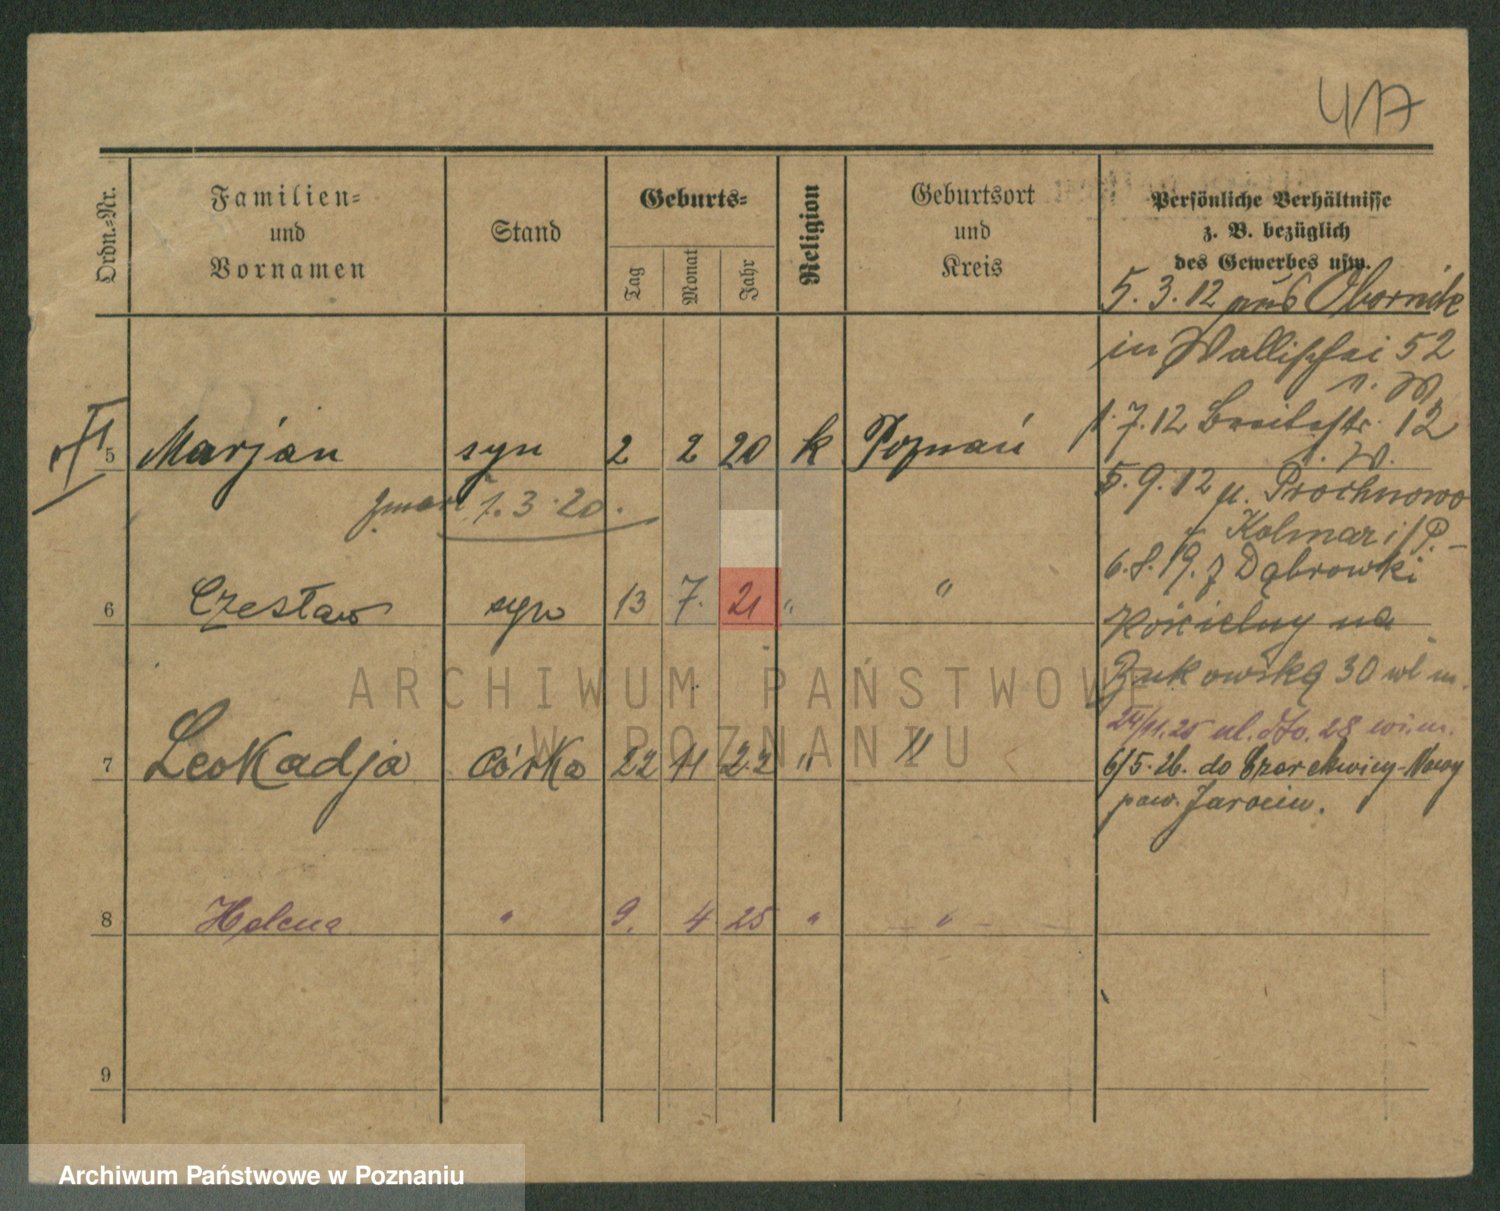 417
Ordn.-Nr.
Familien-
und
Vornamen
Stand
Geburts-
Tag
Monat
Jahr
Religion
Geburtsort
und
Kreis
Persönliche Verhältnisse
z. B. bezüglich
des Gewerbes usw.
5. 3. 12 aus Obornik
in Wallischei 52
v. W.
1. 7. 12 Breitestr. 12
v. W.
5. 9. 12 n. Prochnowo
Kolmar i/P. –
6. 8. 19. z Dąbrowki
Kościelny na
Bukowską 30 wł m.
24/11. 25 ul. dto. 28 wł. m.
6/5. 26. do
pow. Jarocin.
5 Marjan syn 2 2 20 k Poznań
zmarł 1. 3. 20.
6 Czesław syn 13 7. 21 " "
7 Leokadja córka 22 11 22 " "
8 Helena " 9. 4 25 " "
9
ARCHIWUM PAŃSTWOWE
W POZNANIU
Archiwum Państwowe w Poznaniu